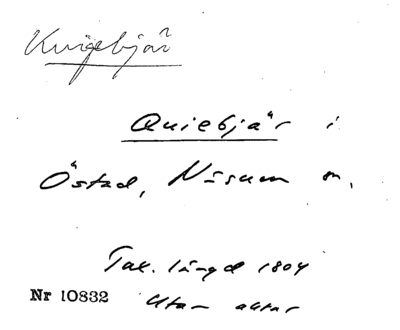 Kvigebjär
Quiebjär i
Östad, Nösum m,
Tak. längd 1804
Nr 10832 Utan aktnr